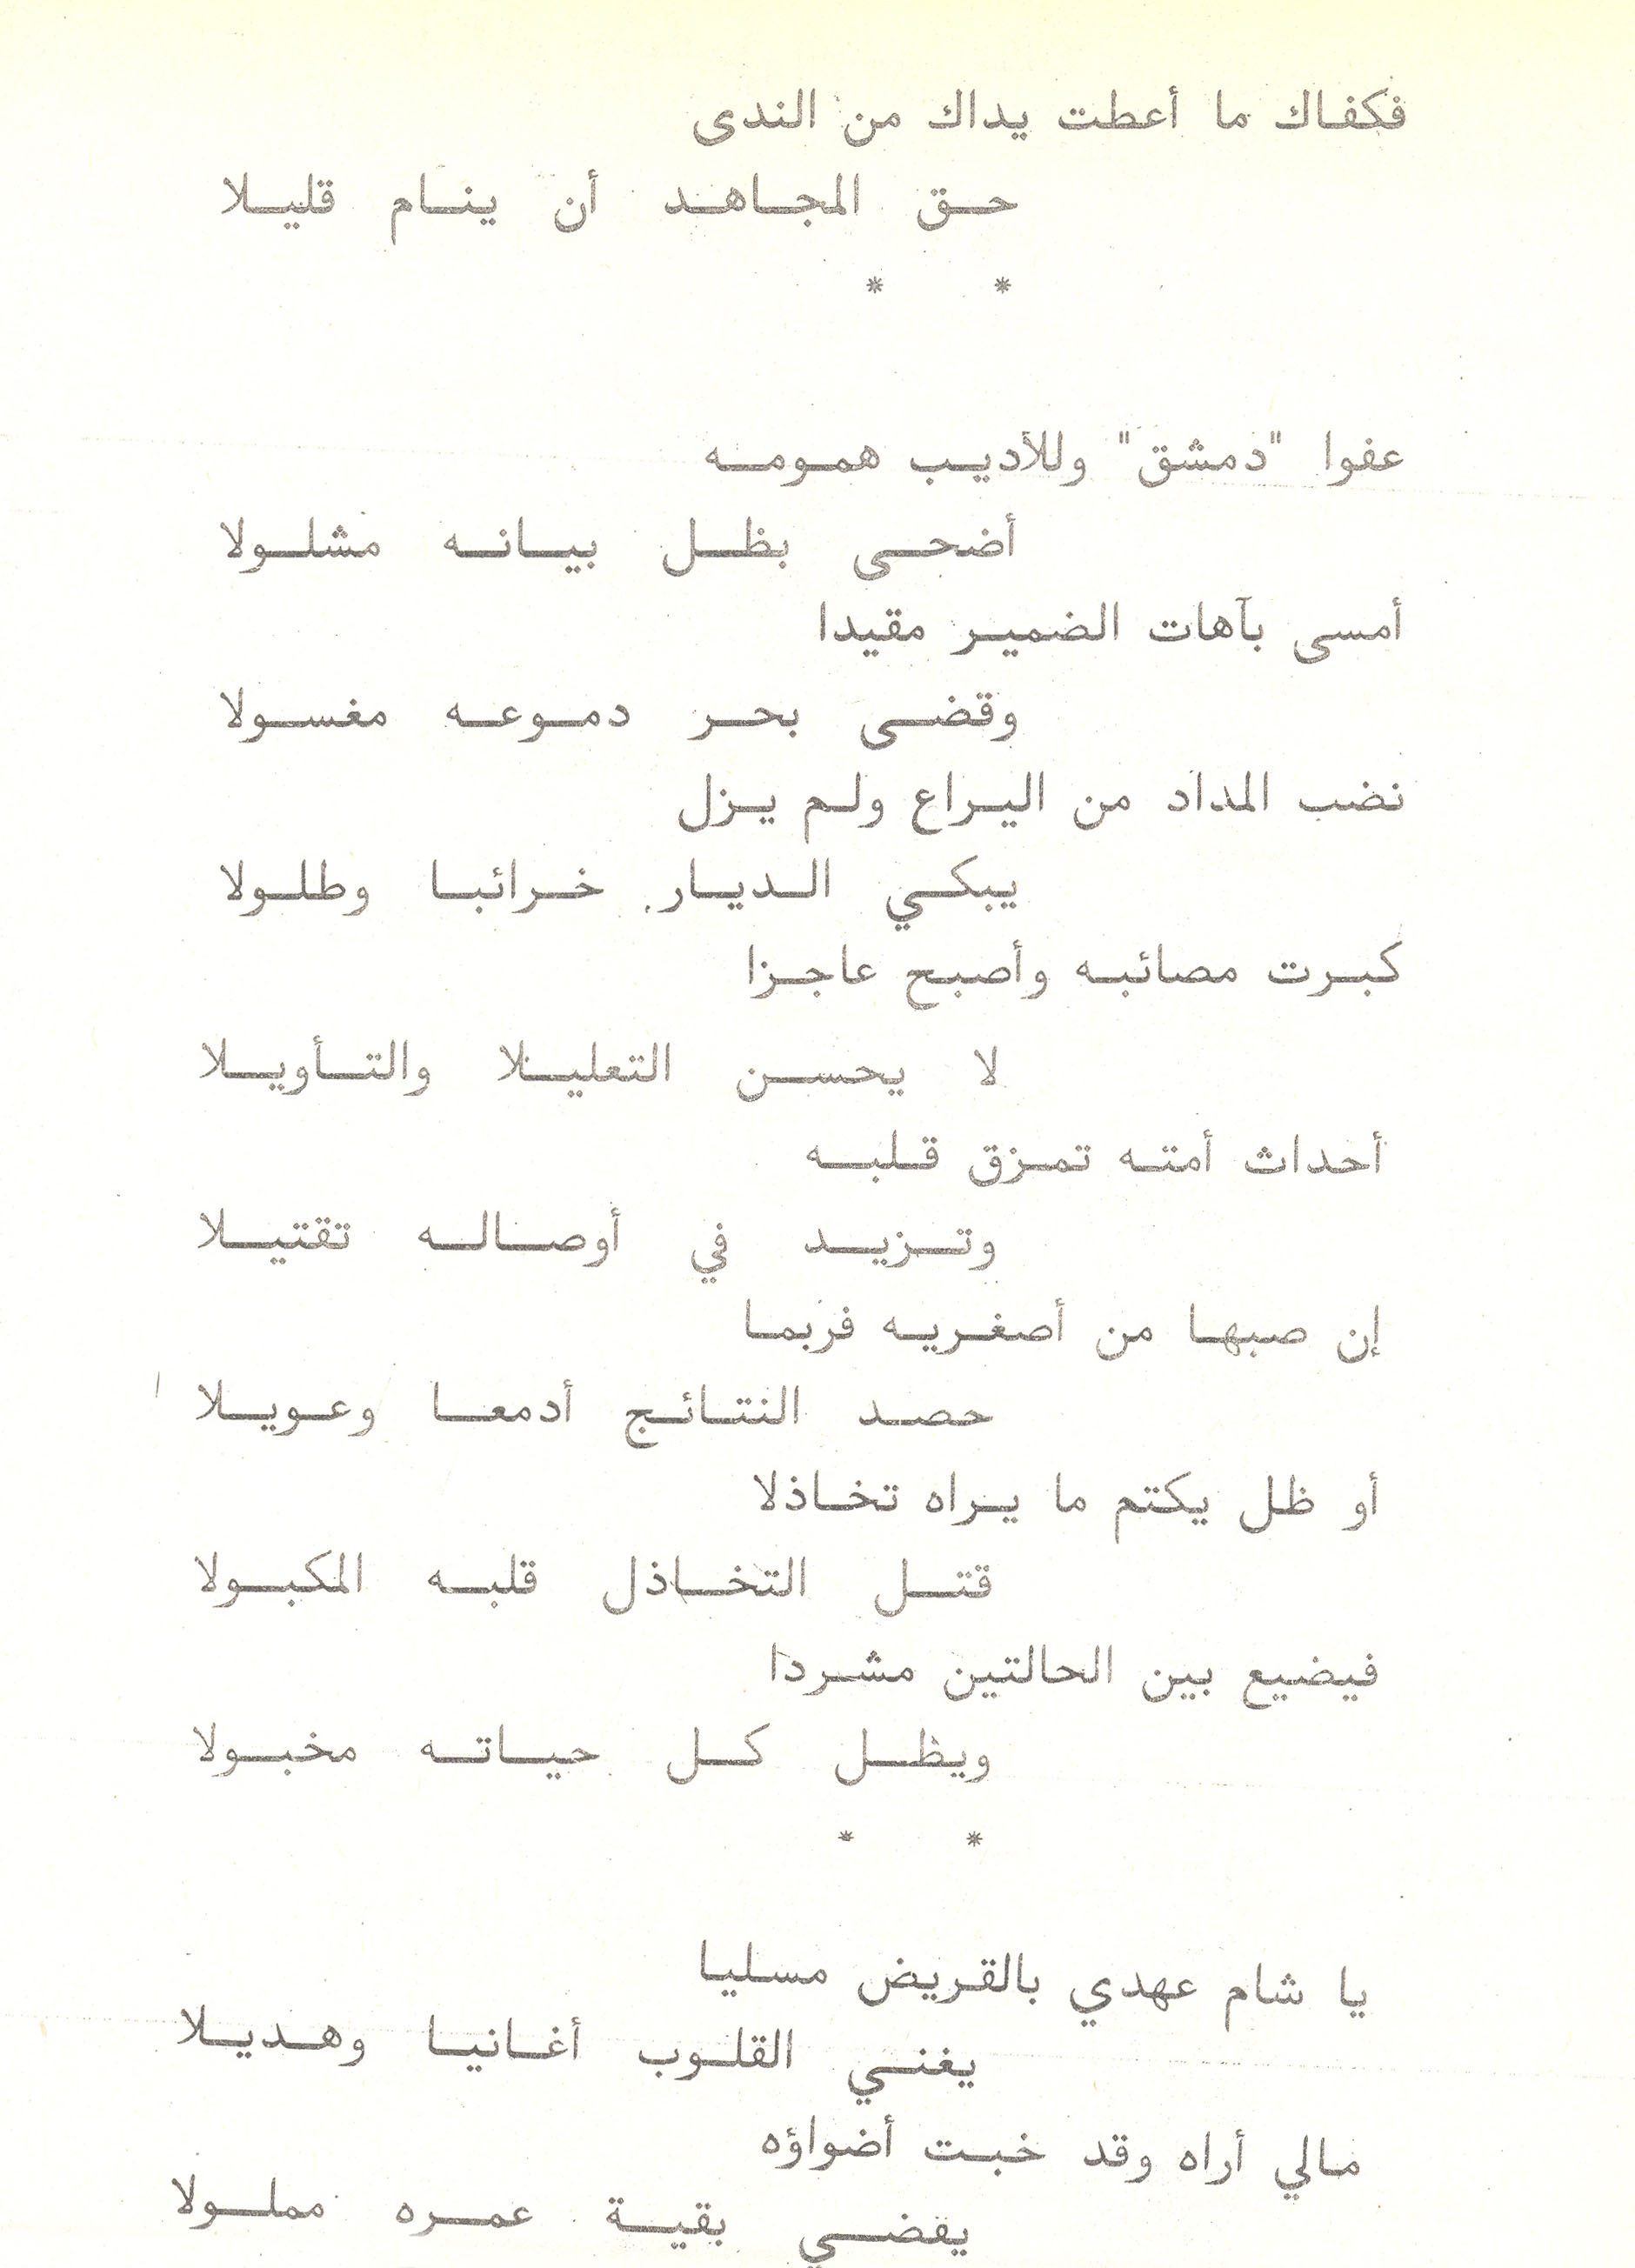 فكفاك ما أعطت يداك من الندى
حق المجاهد أن ينام قليلا
* *
عفوا "دمشق" وللأديب همومه
أضحى بظل بيانه مشلولا
أمسى بآهات الضمير مقيدا
وقضى بحر دموعه مغسولا
نضب المداد من اليراع ولم يزل
يبكي الديار خرائبا وطلولا
كبرت مصائبه وأصبح عاجزا
لا يحسن التعليلا والتأويلا
أحداث أمته تمزق قلبه
وتزيد في أوصاله تقتيلا
إن صبها من أصغريه فربما
حصد النتائج أدمعا وعويلا
أو ظل يكتم ما يراه تخاذلا
قتل التخاذل قلبه المكبولا
فيضيع بين الحالتين مشردا
ويظل كل حياته مخبولا
* *
يا شام عهدي بالقريض مسليا
يغني القلوب أغانيا وهديلا
مالي أراه وقد خبت أضواؤه
يقضي بقية عمره مملولا